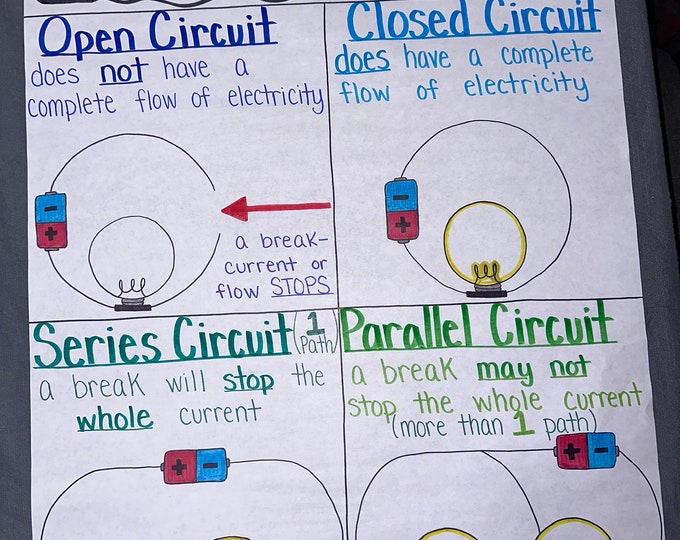 Open Circuit
does not have a
complete flow of electricity
-
+
a break-
current or
flow STOPS
Closed Circuit
does have a complete
flow of electricity
-
+
Series Circuit (1
Path)
a break will stop the
whole current
+ -
Parallel Circuit
a break may not
stop the whole current
(more than 1 path)
+ -